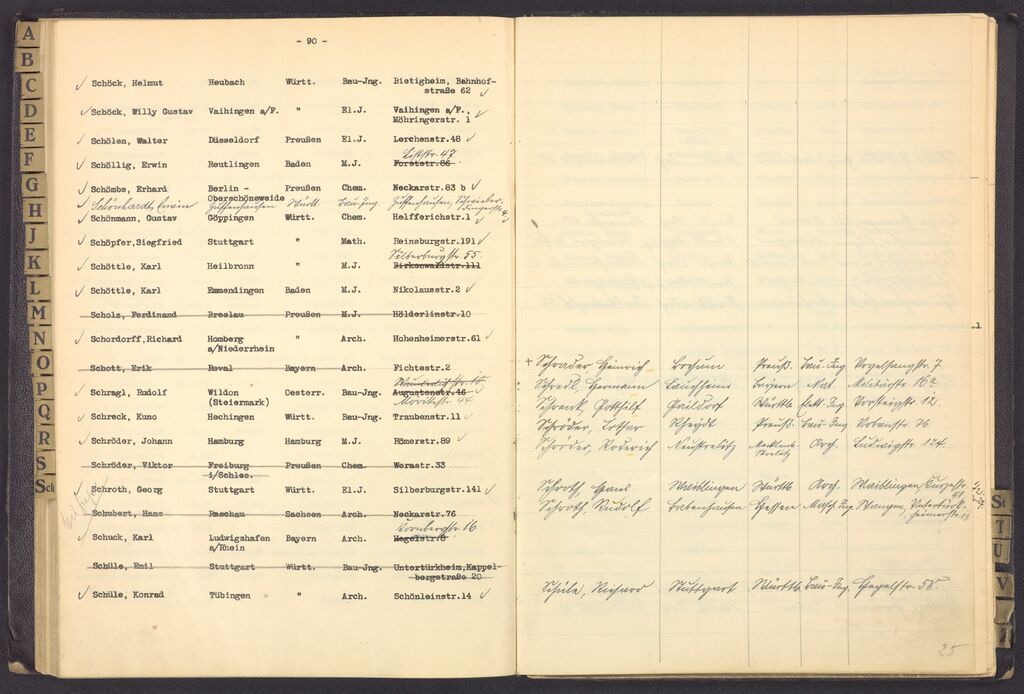 A
B
C
D
E
F
G
H
J
K
L
M
N
O
P
Q
R
S
Sch
- 90 -
✓ Schöck, Helmut Heubach Württ. Bau-Jng. Bietigheim, Bahnhof-
straße 62 ✓
✓ Schöck, Willy Gustav Vaihingen a/F. " El.J. Vaihingen a/F.,
Möhringerstr. 1 ✓
✓ Schölen, Walter Düsseldorf Preußen El.J. Lerchenstr.48 ✓
Liststr. 47
✓ Schöllig, Erwin Reutlingen Baden M.J. Forststr.86
✓ Schömbs, Erhard Berlin - Preußen Chem. Neckarstr.83 b ✓
Oberschöneweide
✓ Schönhardt, Erwin Zuffenhausen Württ. Bau-Ing. Zuffenhausen,
✓ Schönmann, Gustav Göppingen Württ. Chem. Helfferichstr.1 ✓
✓ Schöpfer,Siegfried Stuttgart " Math. Reinsburgstr.191 ✓
Silberburgstr. 55.
✓ Schöttle, Karl Heilbronn " M.J. Birkenwaldstr.111
✓ Schöttle, Karl Emmendingen Baden M.J. Nikolausstr.2 ✓
Scholz, Ferdinand Breslau Preußen M.J. Hölderlinstr.10
✓ Schordorff,Richard Homberg " Arch. Hohenheimerstr.61 ✓
a/Niederrhein
Schott, Erik Reval Bayern Arch. Fichtestr.2
✓ Schragl, Rudolf Wildon Oesterr. Bau-Jng. Augustenstr.48
(Steiermark)
✓ Schreck, Kuno Hechingen Württ. Bau-Jng. Traubenstr.11 ✓
✓ Schröder, Johann Hamburg Hamburg M.J. Römerstr.89 ✓
Schröder, Viktor Freiburg Preußen Chem. Werastr.33
i/Schles.
✓ Schroth, Georg Stuttgart Württ. El.J. Silberburgstr.141 ✓
Schubert, Hans Raschau Sachsen Arch. Neckarstr.76
Kornbergstr. 16
✓ Schuck, Karl Ludwigshafen Bayern Arch. Hegelstr.8
a/Rhein
Schüle, Emil Stuttgart Württ. Bau-Jng. Untertürkheim,Kappel-
bergstraße 20
✓ Schüle, Konrad Tübingen " Arch. Schönleinstr.14 ✓
+ Schrader Heinrich Bochum Preuß. Bau-Ing Vogelsangstr. 7
Schredl, Hermann Lauchheim Bayern Nat. Militärstr. 16a
Schrenk, Gotthilf Gaildorf Württb. Elekt.-Ing Vorsteigstr. 12
Schröder, Lothar Rheydt Preuß. Bau-Ing. Urbanstr. 76
Schröder, Roderich Neustrelitz Mecklenb. Strelitz Arch. Ludwigstr. 124.
Schroth, Hans Waiblingen Württb. Arch. Waiblingen
Schroth, Rudolf Babenhausen Hessen Masch.Ing
Schüle, Richard Stuttgart Württb. Bau-Ing. Hegelstr. 58.
25
St
T
U
V